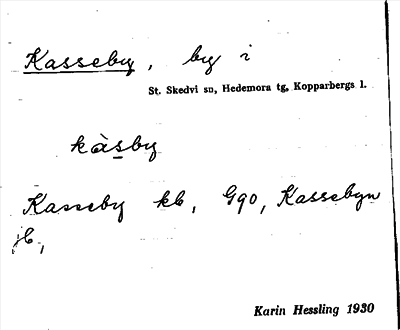 Kasseby, by i
St. Skedvi sn, Hedemora tg, Kopparbergs l.
kàsby
Kasseby kb, Gqo, Kassebyn
jb,
Karin Hessling 1930